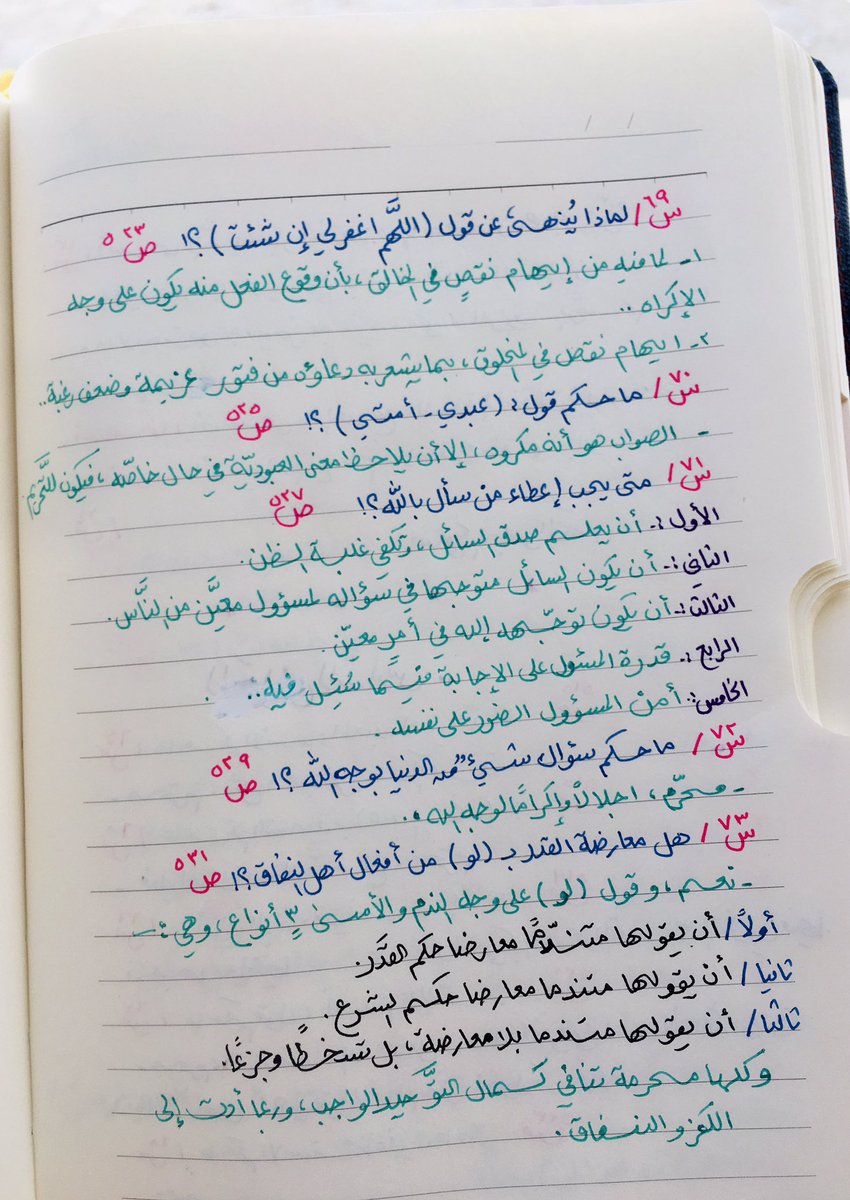 س٦٩/ لماذا يُنهى عن قول (اللَّهم اغفر لي إن شئت) ؟! ص٥٢٣
١- لما فيه من إيهام نقصٍ في الخالق، بأن وقوع الفعل منه يكون على وجه
الإكراه ..
٢- ايهام نقص في المخلوق، بما يشعر به دعاؤه من فتور عزيمة وضعف رغبة..
س٧٠/ ما حكم قول: (عبدي - أمتي) ؟! ص٥٢٥
- الصواب هو أنه مكروه، إلا أن يلاحظ معنى العبوديّة في حال خاصّه، فيكون للتَّحريم
س٧١/ متى يجب إعطاء من سأل بالله؟! ص٥٢٧
الأول:- أن يعلم صدق السائل، وتكفي غلبة الظن.
الثاني:- أن يكون السائل متوجها في سؤاله لمسؤول معيَّن من النَّاس.
الثالث:- أن يكون توجّهه إليه في أمرٍ معيّن.
الرابع:- قدرة المسئول على الإجابة فيما سُئِل فيه..
الخامس:- أمن المسؤول الضرر على نفسه.
س٧٢/ ما حكم سؤال شيءٍ من الدنيا بوجه الله ؟! ص٥٢٩
- محرّم، اجلالاً وإكرامًا لوجه الله ..
س٧٣/ هل معارضة القدر بـ (لو) من أفعال أهل النفاق؟! ص٥٣١
- نعم، وقول (لو) على وجه الندم والأسى ٣ أنواع، وهي:-
أولاً/ أن يقولها متندّمًا معارضا حكم القَدَر.
ثانيا/ أن يقولها متندما معارضا حكم الشرع.
ثالثا/ أن يقولها متندما بلا معارضة، بل تسخطًا وجزعًا.
وكلها محرمة تنافي كمال التوَّحيد الواجب، وربما أدت إلى
الكفر والنفاق.